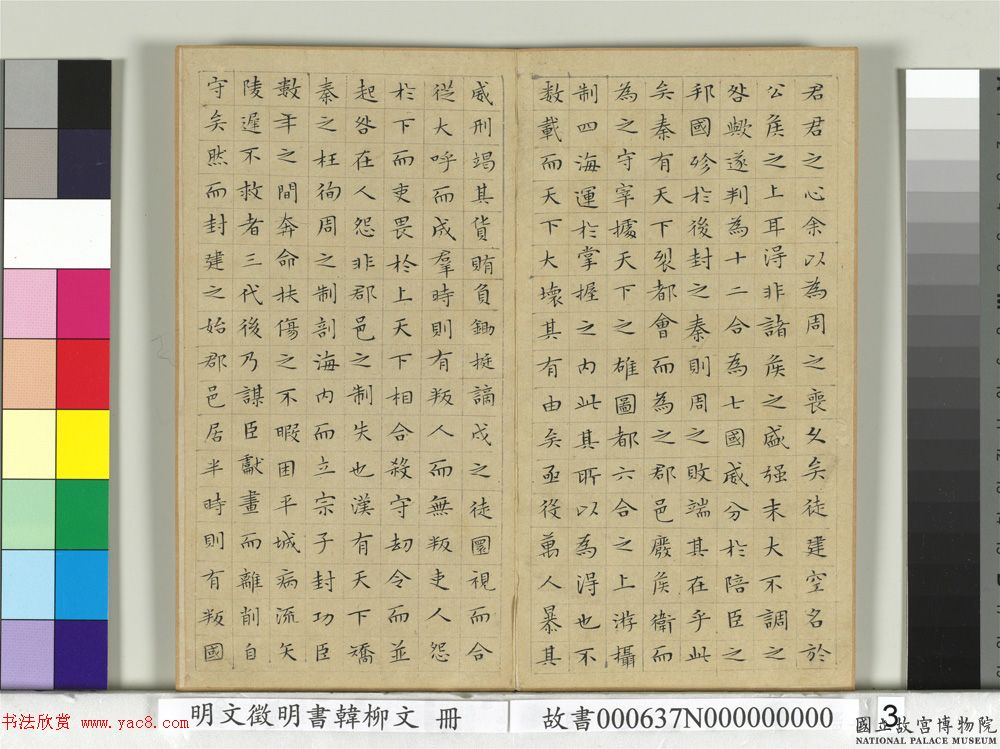 君君之心余以為周之喪久矣徒建空名於
公侯之上耳得非諸侯之盛强末大不調之
咎歟遂判為十二合為七國威分於陪臣之
邦國殄於後封之秦則周之敗端其在乎此
矣秦有天下裂都會而為之郡邑廢侯衛而
為之守宰據天下之雄圖都六合之上游攝
制四海運於掌握之內此其所以為得也不
數載而天下大壞其有由矣亟役萬人暴其
威刑竭其貨賄負鋤梃謫戍之徒圜視而合
從大呼而成羣時則有叛人而無叛吏人怨
於下而吏畏於上天下相合殺守劫令而並
起咎在人怨非郡邑之制失也漢有天下矯
秦之枉徇周之制剖海內而立宗子封功臣
數年之間奔命扶傷之不暇困平城病流矢
陵遲不救者三代後乃謀臣獻畫而離削自
守矣然而封建之始郡邑居半時則有叛國
明文徵明書韓柳文 冊
故書000637N000000000
3
國立故宮博物院
NATIONAL PALACE MUSEUM
书法欣赏 www.yac8.com